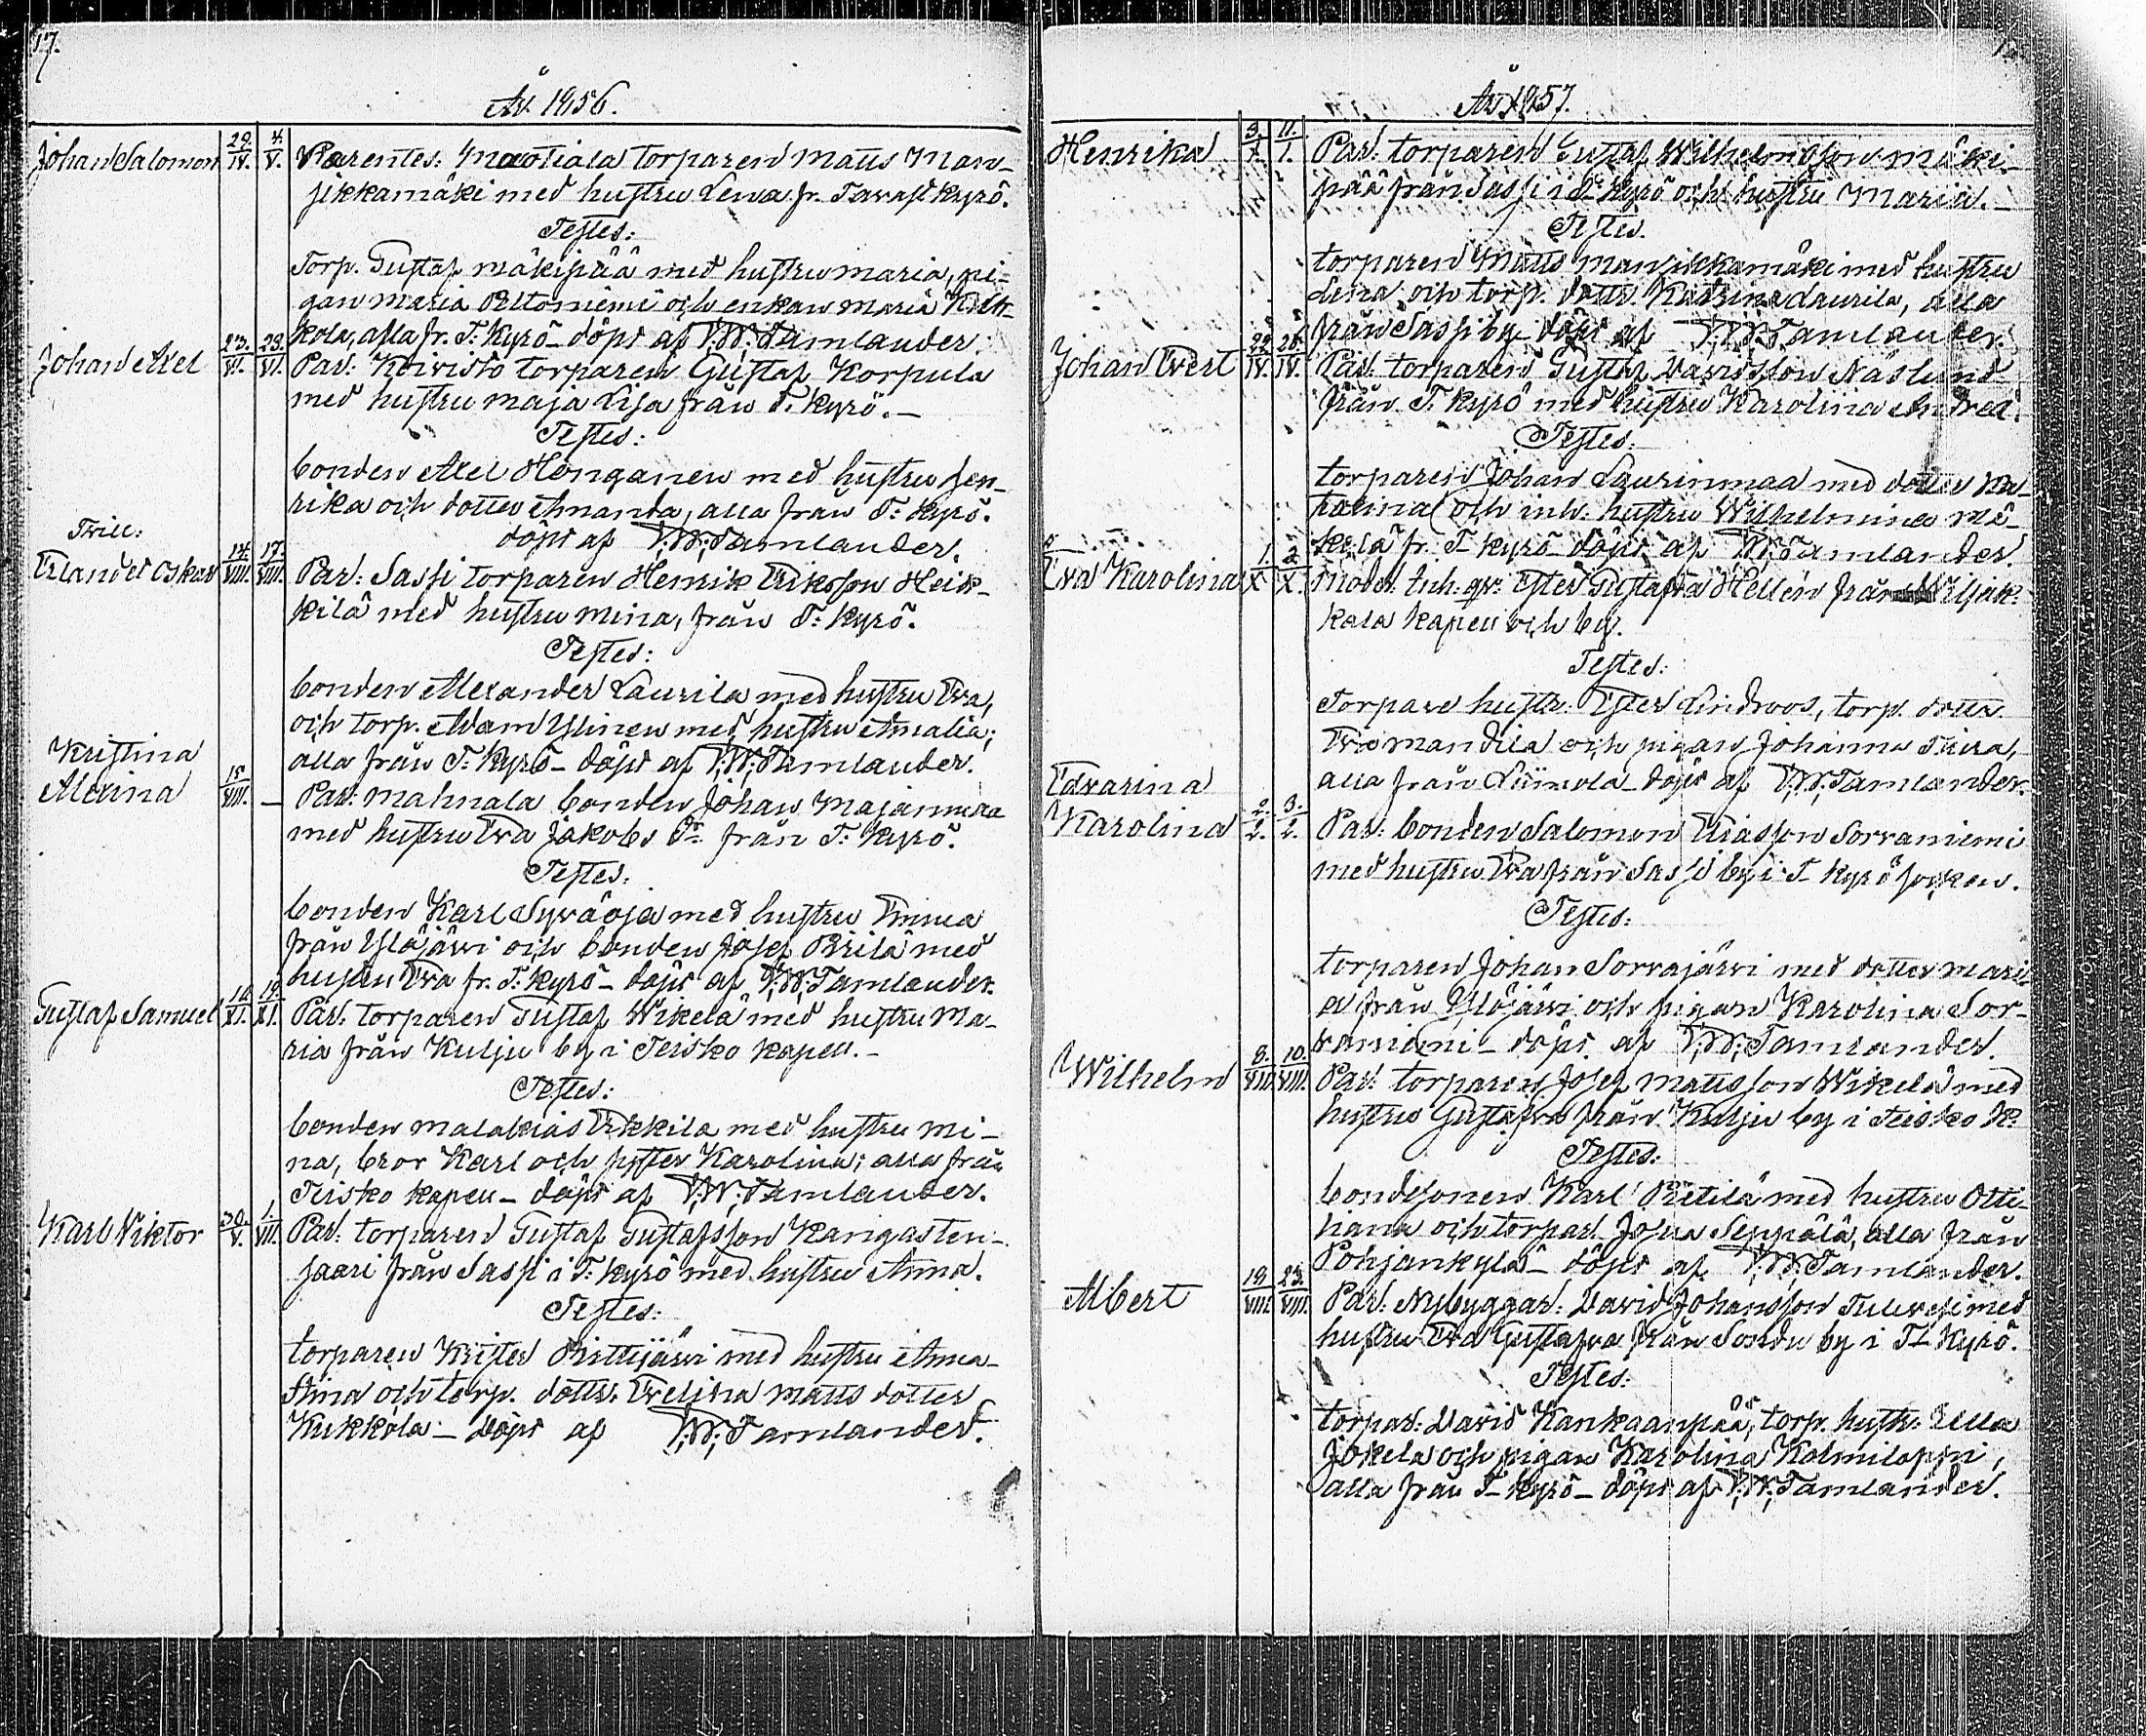 17.
År 1856.
Johan Salomon 29./IV. 4./V. Parentes: Maotiala torparen Matts Man-
sikkamäki med hustru Lena fr. Tavastkyrö.
Testes:
Torp. Gustaf Mäkipää med hustru Maria, pi-
gan Maria Peltoniemi och enkan Maria
kola, alla fr. T. Kyrö – döpt af V.W. Tamlander.
Johan Axel 23./VI. 29./VI. Par: Koivisto torparen Gustaf Korpula
med hustru Maja Lisa från T. Kyrö. –
Testes:
bonden Axel Honganen med hustru Hen-
rika och dotter Amanda, alla från T: Kyrö.
döpt af V.W. Tamlander.
Trill:
Erland et Oskar 14./VIII. 17./VIII. Par: Sassi torparen Henrik Eriksson Heik-
kilä med hustru Mina, från T: Kyrö.
Testes:
bonden Alexander Laurila med hustru Eva,
och torp. Adam Ylinen med hustru Amalia;
alla från T: Kyrö – döpt af V.W. Tamlander.
Kristina
Alexina 15./VIII. – Par: Mahnala bonden Johan Majanmaa
med hustru Eva Jakobs Dr från T: Kyrö.
Testes:
bonden Karl Syväoja med hustru Emma
från Ylöjärvi och bonden Josef Prilä med
hustru Eva fr. T: Kyrö – döpt af V.W. Tamlander.
Gustaf Samuel 16./XI. 19./XI. Par: torparen Gustaf Wikelä med hustru Ma-
ria från Kulju by i Teisko kapell. –
Testes:
bonden Malakias Erkkila med hustru Mi-
na, bror Karl och syster Karolina; alla från
Teisko kapell – döpt af V.W. Tamlander.
Karl Viktor 30./V. 1./VII. Par: torparen Gustaf Gustafsson Kangasten-
saari från Sassi i T: Kyrö med hustru Anna.
Testes:
torparen Krister Pirttijärvi med hustru Anna
Stina och torp. dottr: Evelina Matts dotter
Kukkola – döpt af V.W. Tamlander.
År 1857.
Henrika 3./I. 11./I. Par: torparen Gustaf Wilhelmsson Mäki-
pää från Sassi i T- Kyrö och hustru Maria. –
Testes.
torparen Matts Mansikkamäki med hustru
Lena och torp. dottr. Katrina Laurila, alla
från Sassi by döpt af V.W. Tamlander.
Johan Evert 22./IV. 26./IV. Par: torparen Gustaf Davidsson Näslund
från T. Kyrö med hustru Karolina Andrea.
Testes:
torparen Johan Laurinmaa med dotter Ka-
rolina och inh: hustru Wilhelmina Mä-
kelä fr. T- Kyrö – döpt af V.W. Tamlander.
Eva Karolina 1./X. 2./X. Moder: Inh: qv: Ester Gustafva Hellén från Viljak-
kala kapell och by.
Testes:
Torpare hustr: Ester Lindroos, torp. dottr.
Eva Mandila och pigan Johanna
alla från döpt af V.W. Tamlander.
Edvarina
Karolina 2./2. 3./2. Par: bonden Salomon Eliasson Sorraniemi
med hustru Eva från Sassi by i T- Kyrö socken.
Testes:
torparen Johan Sorrajärvi med dotter Mari-
a från Ylöjärvi och pigan Karolina Sor-
raniemi – döpt af V.W. Tamlander.
Wilhelm 8./VIII. 10./VIII. Par: torparen Josef Mattsson Wikelä med
hustru Gustafva från Kulju by i Teisko K:
Testes:
bondsonen Karl Pietilä med hustru Otti-
liana och torpar: Josua Seppälä, alla från
Pohjankylä – döpt af V.W. Tamlander.
Albert 19./VIII. 23./VIII. Par: Nybyggar: David Johansson Tulivesi med
hustru Eva Gustafva från by i T- Kyrö.
Testes:
torpar: David Kankaanpää, torp. hustr: Ulla
Jokela och pigan Karolina Kolmiloppi,
alla från T- Kyrö – döpt af V.W. Tamlander.